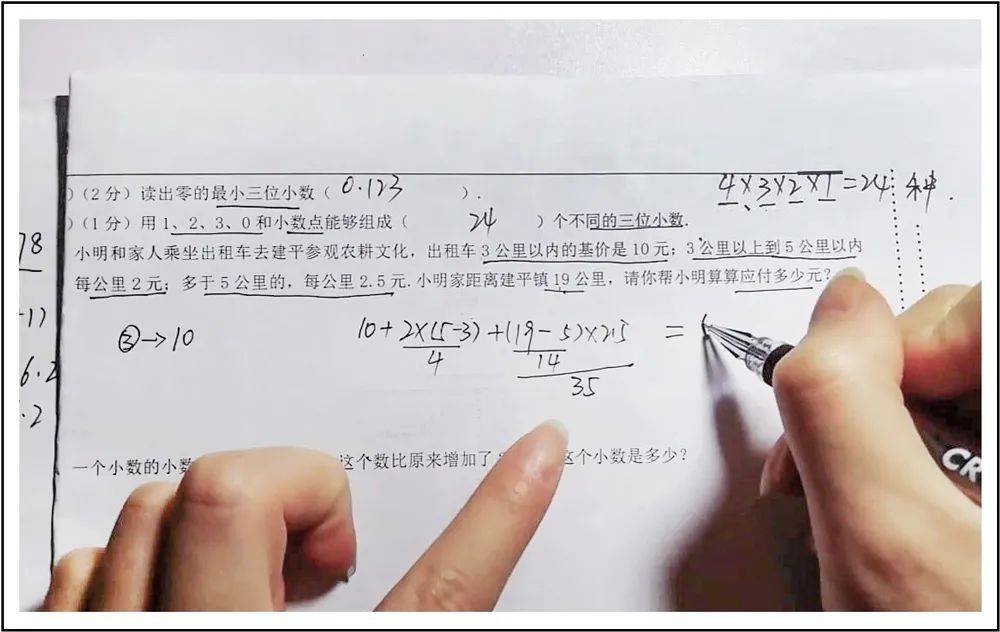 )(2分)读出零的最小三位小数( 0.123 ).
4×3×2×1=24种.
)(1分)用1、2、3、0和小数点能够组成( 24 )个不同的三位小数.
小明和家人乘坐出租车去建平参观农耕文化，出租车3公里以内的基价是10元；3公里以上到5公里以内
每公里2元；多于5公里的，每公里2.5元.小明家距离建平镇19公里，请你帮小明算算应付多少元?
③→10
10+2×(5-3)+(19-5)×2.5 =
4
14
35
一个小数的小数
这个数比原来增加了
这个小数是多少?
78
6.2
.2
CR